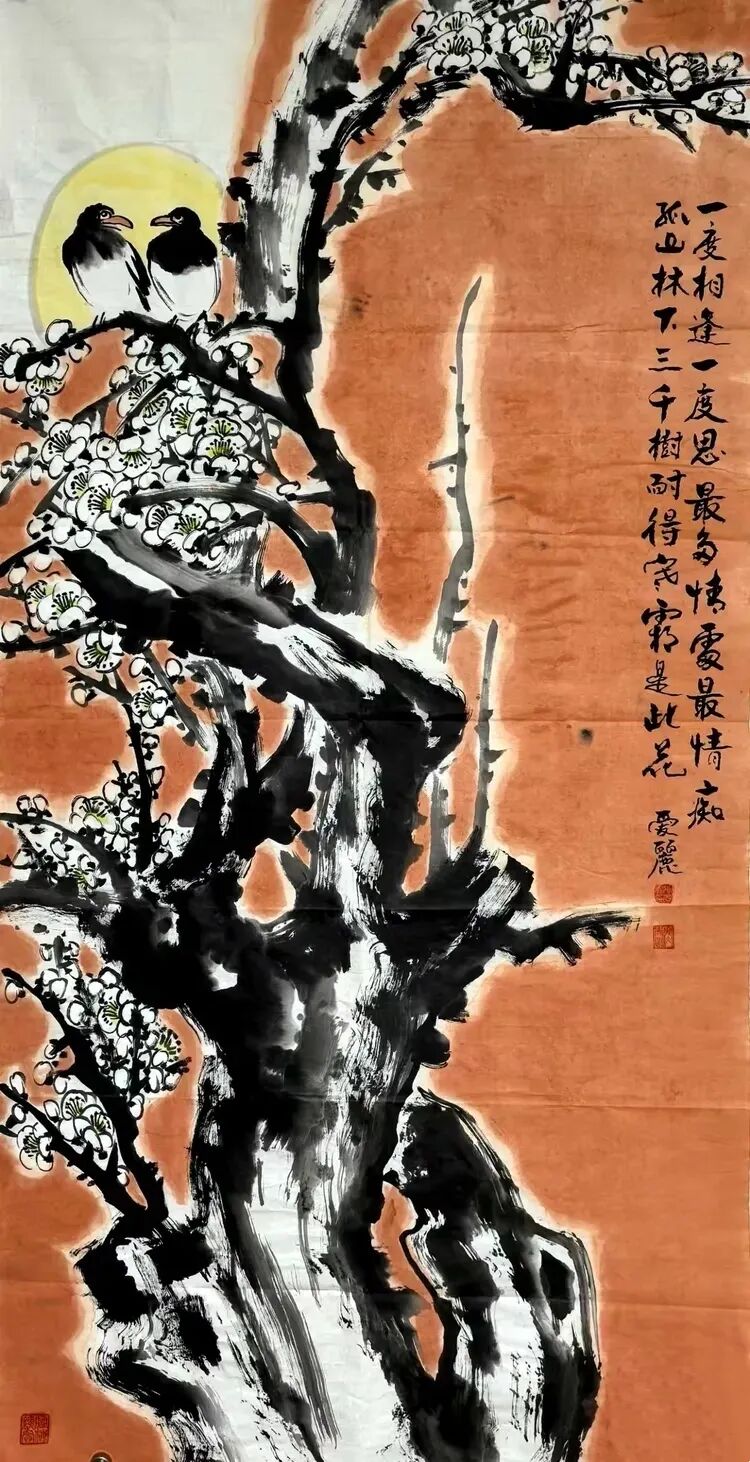 一度相逢一度思最多情處最情痴
孤山林下三千樹耐得寒霜是此花
愛麗